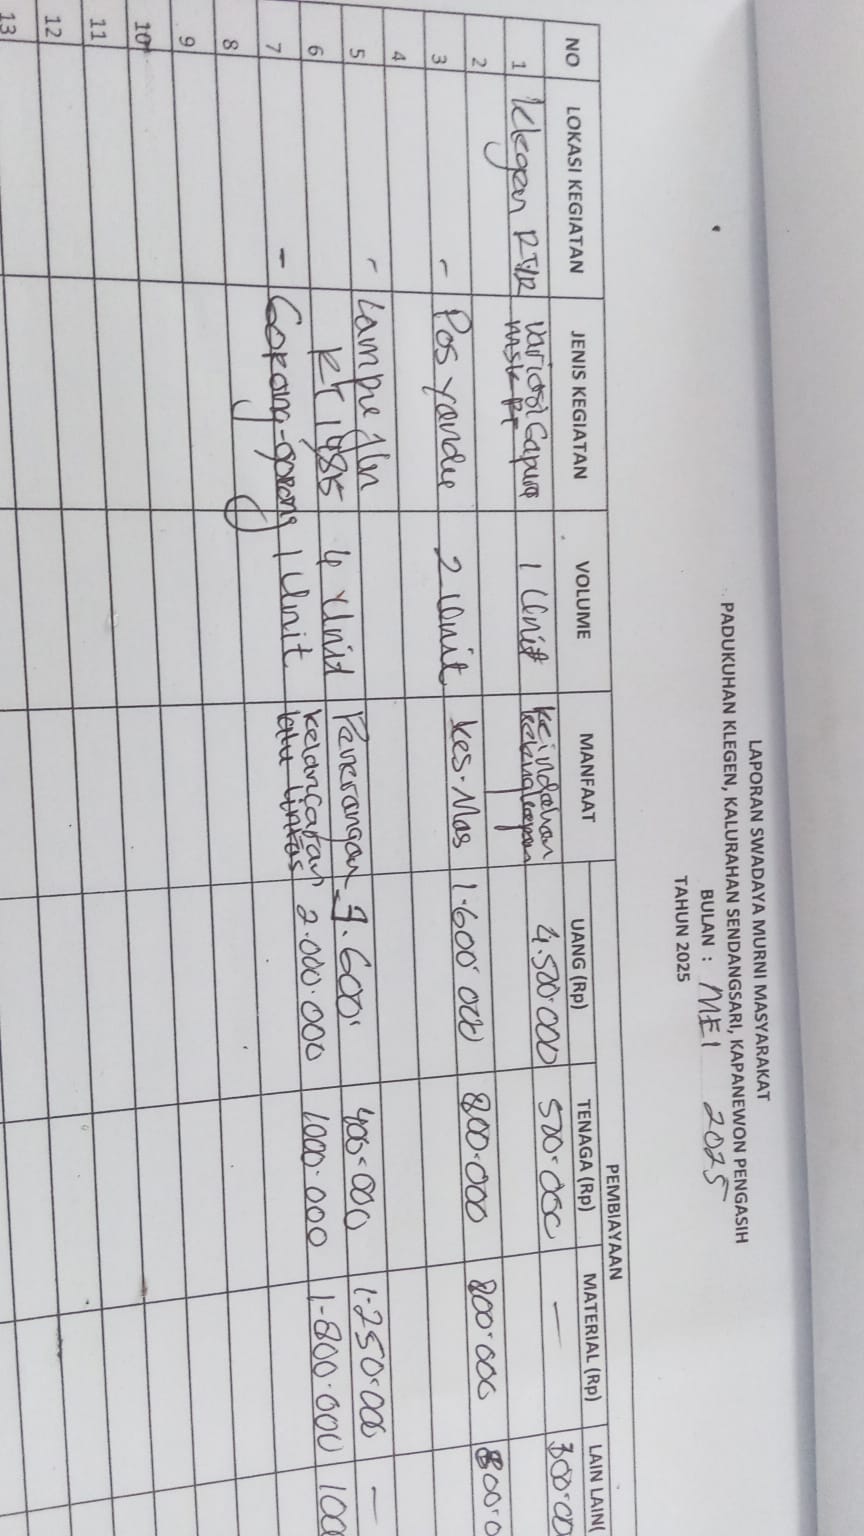 LAPORAN SWADAYA MURNI MASYARAKAT
PADUKUHAN KLEGEN, KALURAHAN SENDANGSARI, KAPANEWON PENGASIH
BULAN : MEI 2025
TAHUN 2025
NO LOKASI KEGIATAN JENIS KEGIATAN VOLUME MANFAAT PEMBIAYAAN
UANG (Rp) TENAGA (Rp) MATERIAL (Rp) LAIN LAIN(
1 Klegen variasi Gapura 1 Unit keindahan 4.500.000 500.000 — 300.00
2
3 - Pos yandu 2 Unit kes. Mas 1.600.000 800.000 800.000 800.0
4
5 - Lampu Jln Penerangan 400.000 1.250.000 —
6 RT 4 Unit kelancaran 2.000.000 1000.000 1.800.000 100
7 - Gorong-gorong 1 Unit lalu lintas
8
9
10
11
12
13